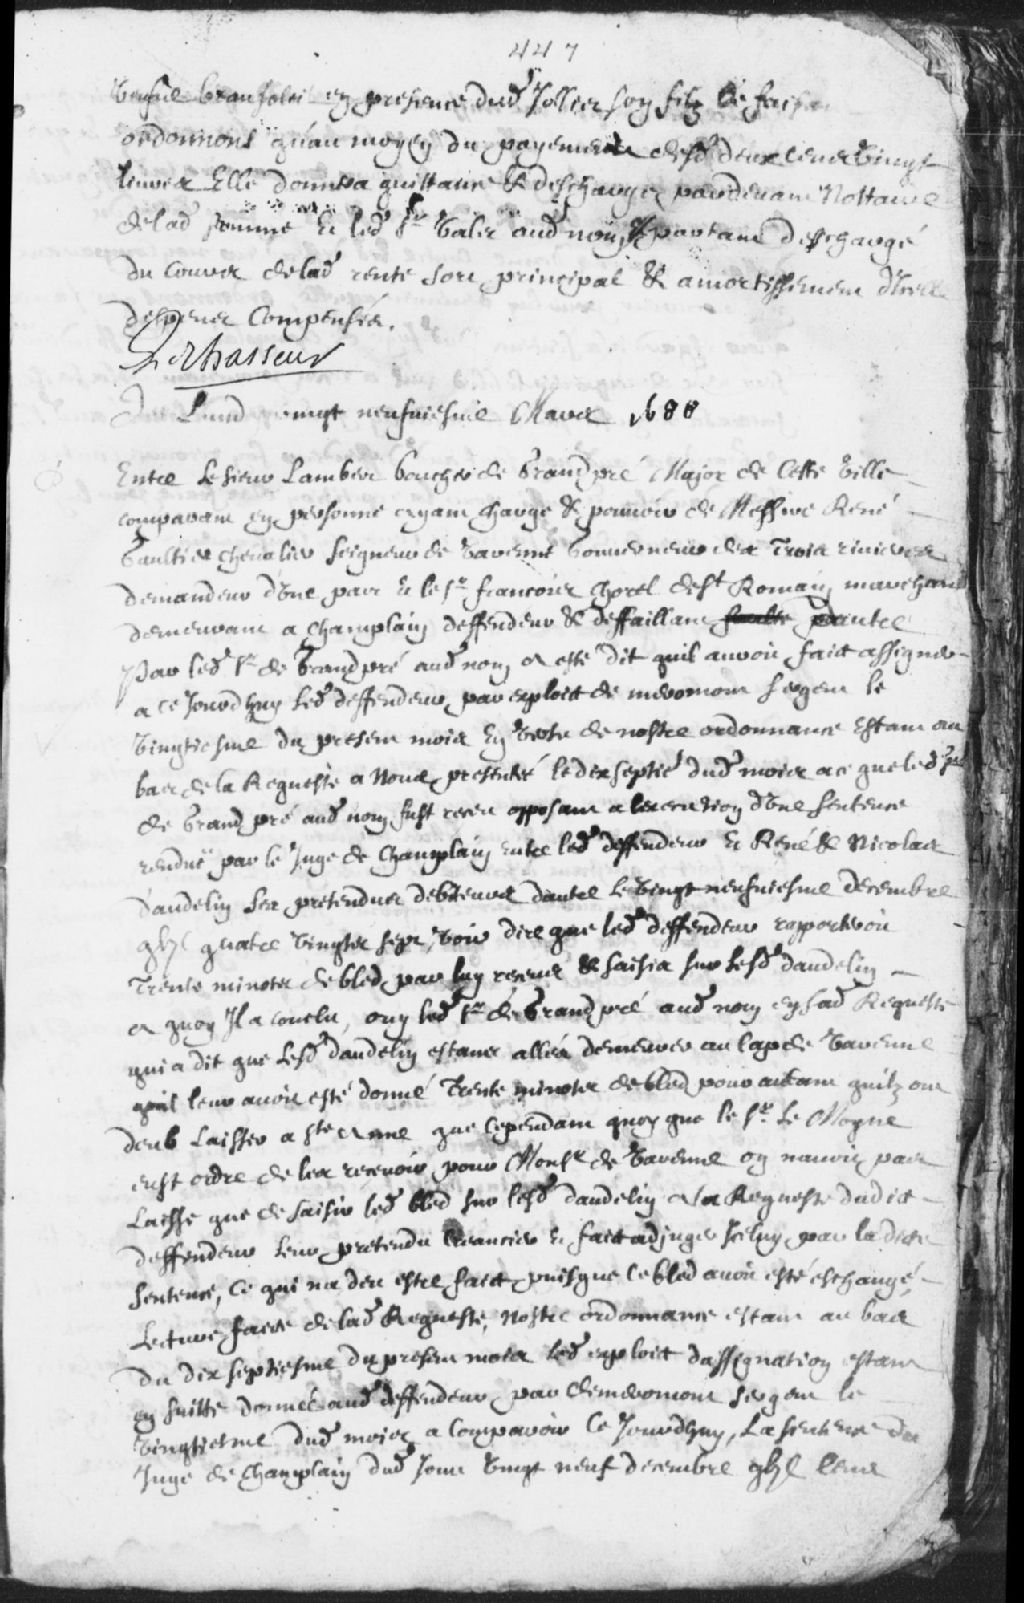 447
en presence dud Jollier son filz ce fais
ordonnons qu'au moyen du payement desd deux cens vingt
livres Elle donnera quittance & descharge pardevant Nottaire
de lad somme Et led Sr Valer aud nom partant deschargé
du cours de lad rente sort principal & amortissement d'icelle
despens Compensés.
Lechasseur
Du Lundy vingt neufuiesme Mars 1688
Entre le sieur Lambert boucher de Grandpré Major de Cette Ville
comparant en personne ayant charge & pouuoir de Messire René
Gaultier cheualier seigneur de Varenne Gouuerneur des Trois riuieres
demandeur d'Une part & le Sr francois chorel de St Romain marchand
demeurant a champlain deffendeur & deffaillant d'autre
Par led Sr de Grandpré aud nom a esté dit quil auroit faict assigner
a ce Jourdhuy led deffendeur par exploict de meromont sergent le
Vingtiesme du present mois En Vertu de nostre ordonnance Estant au
bas de la Requeste a Nous presentée le dix septie dud mois a ce que led Sr
de Grand pré aud nom fust receu opposant a lexecution d'Une sentence
renduë par le Juge de Champlain entre led deffendeur Et René & Nicolas
dandelin ses pretendus debteurs dautre le Vingt neufuiesme decembre
gbjc quatre Vingtz sept, Voir dire que led deffendeur rapporteroit
Trente minotz de bled par luy receus & saisis sur lesd dandelin
a quoy Il a conclu, ouy led Sr de Grandpré aud nom en sad Requeste
qui a dit que lesd dandelin estans allés demeurer au cap de Varenne
quil leur auoit esté donné Trente minotz de bled pour autant quilz ont
deub Laisser a ste Anne que cependant quoy que le Sr. Le Moyne
eust ordre de les receuoir pour Monsr de Varenne on nauoit pas
Laissé que de saisir led bled sur lesd dandelin a la Requeste dudit
deffendeur leur pretendu creancier Et faict adjuger Iceluy par la dite
sentence, Ce qui na deu estre faict puisque le bled auoit esté eschangé,
Lecture faicte de lad Requeste, Nostre ordonnance estant au bas
du dix septiesme du present mois led exploict dassignation estant
en suitte donnée aud deffendeur par de meromont sergent le
Vingtiesme dud mois a comparoir Ce Jourdhuy, La sentence du
Juge de Champlain dud Jour Vingt neuf decembre gbjc